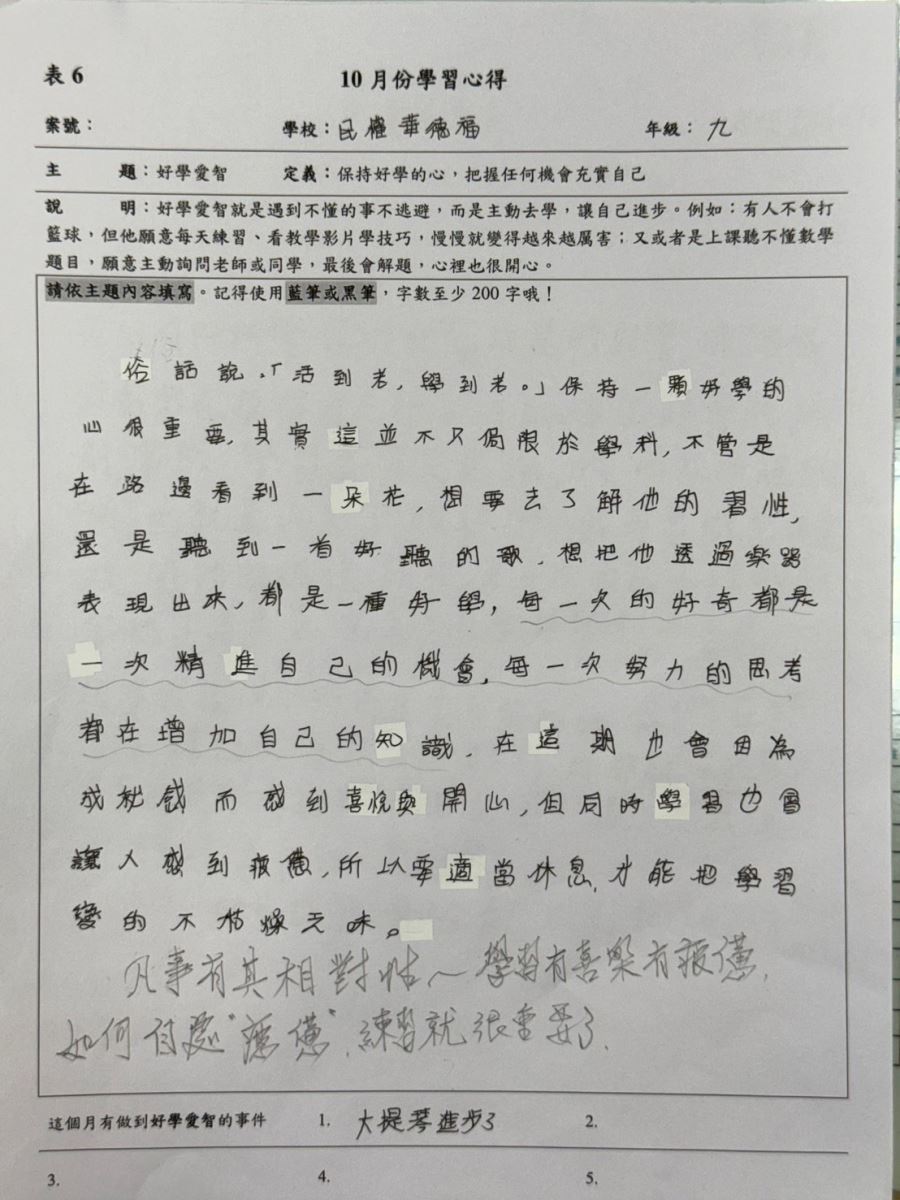 表 6
10 月份學習心得
案號：
學校：民權華德福
年級：九
主 題：好學愛智 定義：保持好學的心，把握任何機會充實自己
說 明：好學愛智就是遇到不懂的事不逃避，而是主動去學，讓自己進步。例如：有人不會打
籃球，但他願意每天練習、看教學影片學技巧，慢慢就變得越來越厲害；又或者是上課聽不懂數學
題目，願意主動詢問老師或同學，最後會解題，心裡也很開心。
請依主題內容填寫。記得使用藍筆或黑筆，字數至少 200 字哦！
俗話說：「活到老，學到老。」保持一顆好學的
心很重要，其實這並不只侷限於學科，不管是
在路邊看到一朵花，想要去了解他的習性，
還是聽到一首好聽的歌，想把他透過樂器
表現出來，都是一種好學，每一次的好奇都是
一次精進自己的機會，每一次努力的思考
都在增加自己的知識，在這期也會因為
成就感而感到喜悅與開心，但同時學習也會
讓人感到疲憊，所以要適當休息，才能把學習
變的不枯燥乏味。
凡事有其相對性～學習有喜樂有疲憊，
如何自處"疲憊"，練習就很重要了。
這個月有做到好學愛智的事件
1. 大提琴進步了
2.
3.
4.
5.